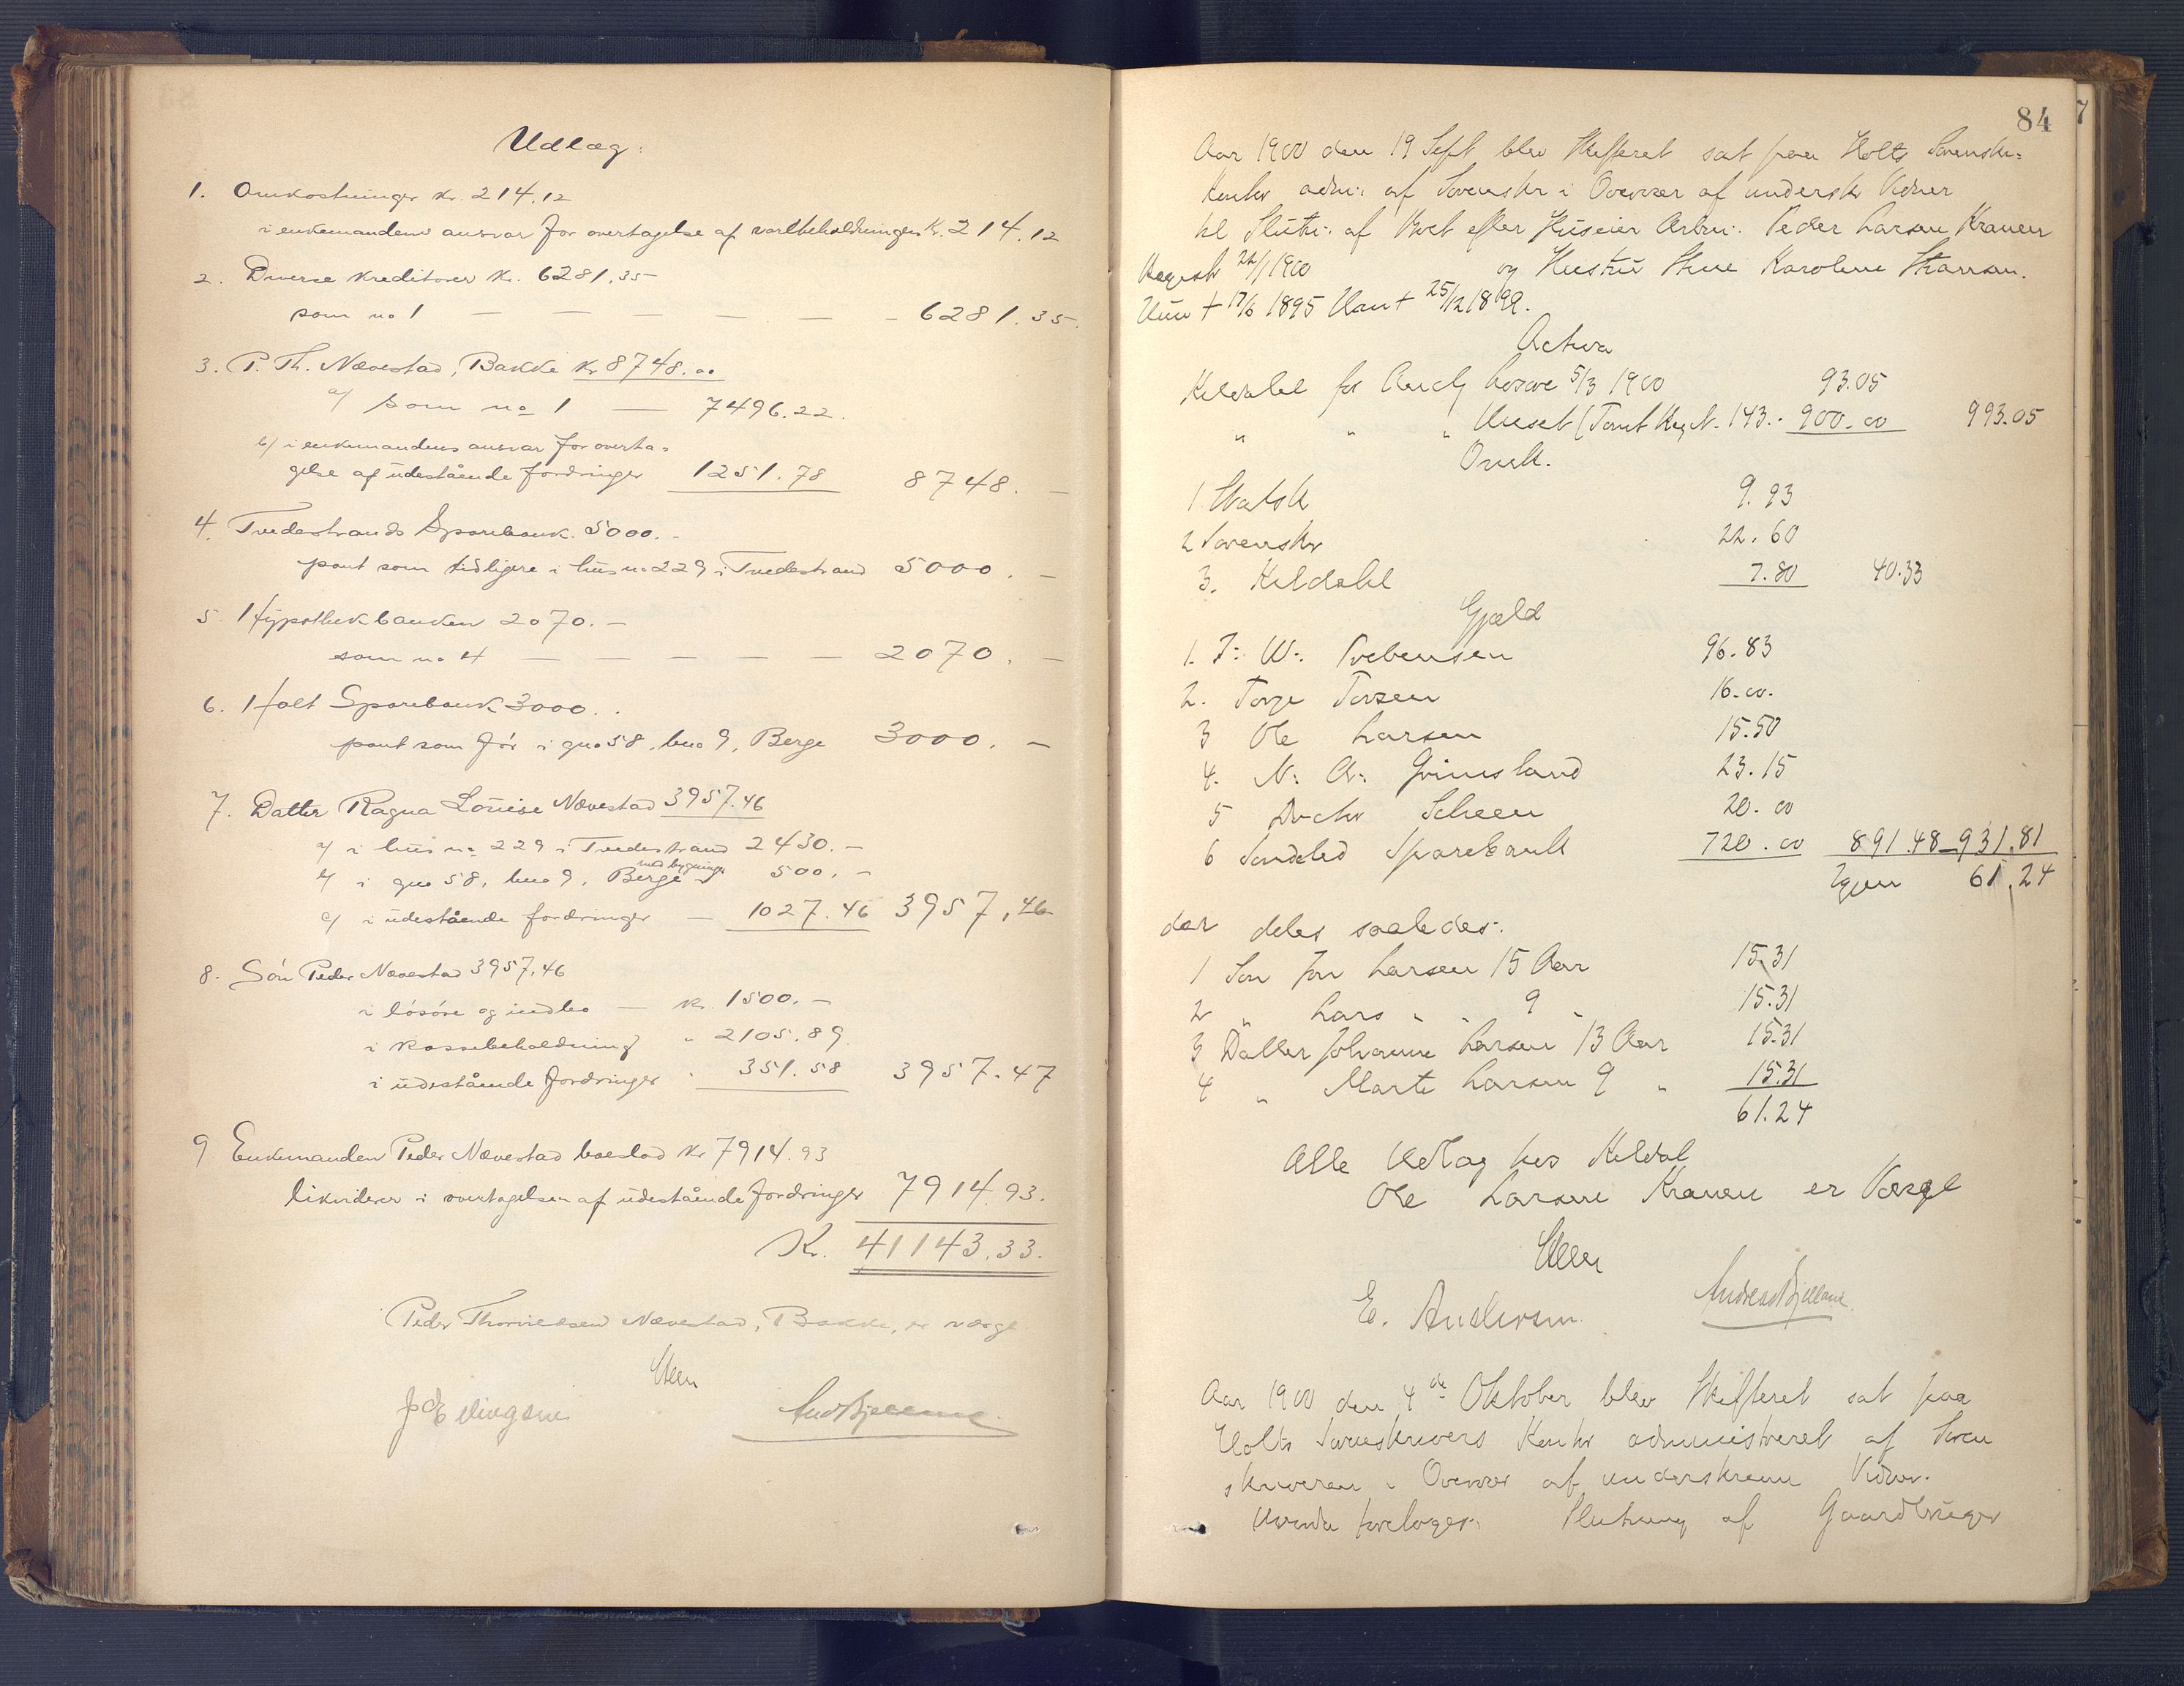 Udlæg:
1. Omkostninger kr. 214.12
i enkemandens ansvar for overtagelse af varebeholdningen K. 214.12
2. Diverse kreditorer kr. 6281.35
som no 1 — — — — — - 6281.35
3. P. Th. Nævestad, Bakke kr 8748.00
a/ som no 1 — 7496.22.
b/ i enkemandens ansvar for overta=
gelse af udestående fordringer 1251.78 8748. —
4. Tvedestrands Sparebank. 5000. -
pant som tidligere i hus no 229 i Tvedestrand 5000. —
5. Hypothekbanken 2070. —
som no 4 — — — — — 2070. —
6. Holt Sparebank 3000. .
pant som før i gno 58, bno 9, Berge 3000. —
7. Datter Ragna Louise Nævestad 3957.46
a/ i hus no 229 i Tvedestrand 2430. —
med bygninger
b/ i gno 58, bno 9, Berge 500. —
c/ i udestående fordringer — 1027.46 3957,46
8. Søn Peder Nævestad 3957.46
i løsøre og indbo — kr. 1500. —
i kassebeholdning " 2105.89
i udestående fordringer " 351.58 3957.47
9 Enkemanden Peder Nævestad boeslod kr 7914.93
likviderer i overtagelsen af udestående fordringer 7914.93.
Kr. 41143.33.
Peder Thorvildsen Nævestad, Bakke, er værge
J E
84
7
Aar 1900 den 19 Sept blev Skifteret sat paa Holts Sorenskr=
kontor adm: af Sorenskr i Overvær af underskr Vidner
til Slutn: af Boet efter Huseier Peder Larsen Kranen
Registr 22/1 1900 og Hustru Karoline
Hun + 17/6 1895 Han + 25/12 1899.
Activa
Kildahl for Løsøre 5/3 1900 93.05
" " " Huset (Tomt N. 143.- 900.00 993.05
Omk.
1 Statsk 9.93
2 Sorenskr 22.60
3. Kildahl 7.80 40.33
Gjæld
1. J: W: Prebensen 96.83
2. Torje 16.00.
3 Ole Larsen 15.50
4. N: A: Grimsland 23.15
5 Doctor Scheen 20.00
6 Søndeled Sparebank 720.00 891.48 931.81
Igjen 61.24
der deles saaledes:
1 Søn Larsen 15 Aar 15.31
2 " Lars " " 9 " 15.31
3 Datter Johanne Larsen 13 Aar 15.31
4 " Marte Larsen 9 " 15.31
61.24
Alle Udlæg hos Kildal
Ole Larsen Kranen er Værge
E. Andersen Andreas Bjelland
Aar 1900 den 4de Oktober blev Skifteret sat paa
Holts Sorenskrivers Kontor administreret af Soren
skriveren i Overvær af underskrevne Vidner.
Hvorda foretoges: Slutning af Gaardbruger